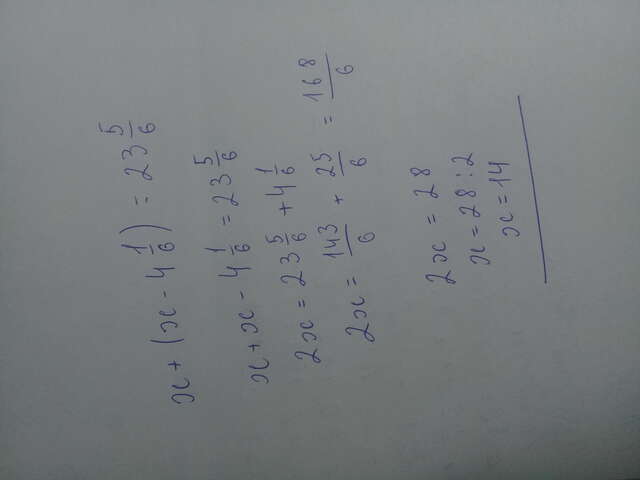 x + (x - 4 1/6) = 23 5/6
x + x - 4 1/6 = 23 5/6
2x = 23 5/6 + 4 1/6
2x = 143/6 + 25/6 = 168/6
2x = 28
x = 28 : 2
x = 14